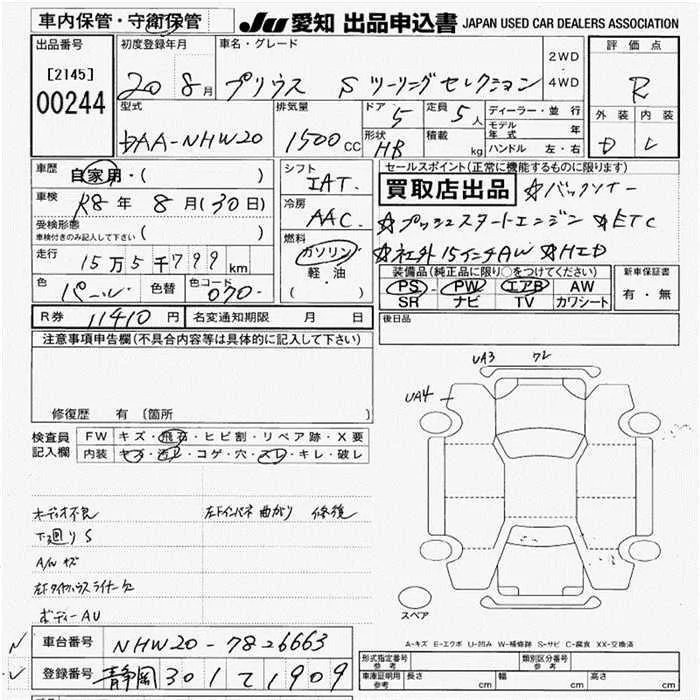 車内保管・守衛保管
JU 愛知 出品申込書 JAPAN USED CAR DEALERS ASSOCIATION
出品番号 初度登録年月 車名・グレード 2WD・4WD 評価点
[2145] 00244 20 8月 プリウス S ツーリングセレクション R
型式 排気量 ドア 5 定員 5人 ディーラー・並行 外装 内装
DAA-NHW20 1500CC 形状 HB 積載 kg モデル年式 年 D
ハンドル 左・右
車歴 自家用・( ) シフト IAT セールスポイント(正常に機能するものに限ります)
車検 R8年 8月(30日) 冷房 AAC 買取店出品 ☆バックソナー
受検形態 車検付きのみ記入して下さい ( ) ☆プッシュスタートエンジン ☆ETC
走行 15万5千799km 燃料 ガソリン・軽油 ( ) ☆社外15インチAW ☆HID
色 パール 色替 色コード 070 装備品(純正品に限り○をつけてください) 新車保証書
PS・PW・エアB・AW 有・無
SR ナビ TV カワシート
R券 11410円 名変通知期限 月 日 後日品
注意事項申告欄(不具合内容等は具体的に記入して下さい)
修復歴 有 〔箇所 〕
UA3
UA4
検査員記入欄 FW キズ・飛石・ヒビ割・リペア跡・X要
内装 キズ・汚レ・コゲ・穴・スレ・キレ・破レ
オーディオ不良 左ドインパネ曲がり 修復
下廻りS
A/Wキズ
左Fタイヤハウスライナー欠
ボディーAU
スペア
A-キズ E-エクボ U-凹み W-補修跡 S-サビ C-腐食 XX-交換済
車台番号 NHW20-7826663
登録番号 静岡 301 て 1909
形式指定番号 参考 類別区分番号 参考
車庫証明用 参考 長さ cm 幅 cm 高さ cm